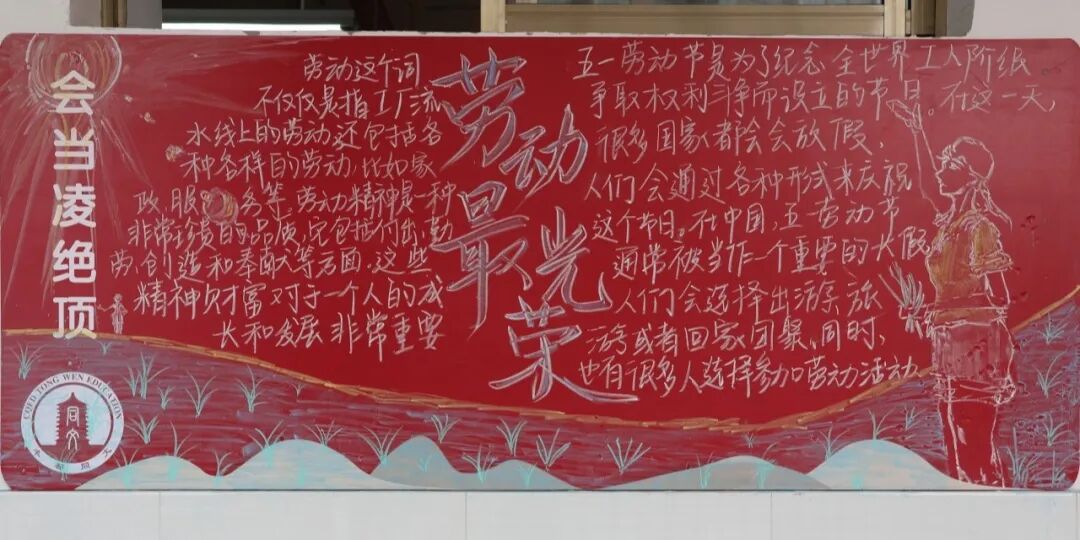 会当凌绝顶
CQFD TONG WEN EDUCATION
同文
丰都同文
劳动这个词
不仅仅是指工厂流
水线上的劳动还包括各
种各样的劳动,比如家
政、服务等,劳动精神是一种
非常珍贵的品质,它包括付出、勤
劳、创造和奉献等方面,这些
精神财富对于一个人的成
长和发展非常重要
劳动最光荣
五一劳动节是为了纪念全世界工人阶级
争取权利斗争而设立的节日。在这一天,
很多国家都会会放假,
人们会通过各种形式来庆祝
这个节日。在中国,五一劳动节
通常被当作一个重要的大假
人们会选择出游 旅
游或者回家团聚,同时,
也有很多人选择参加劳动活动